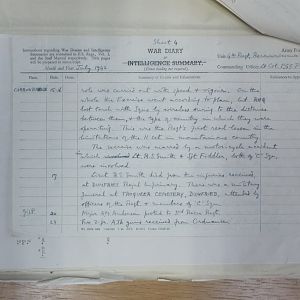 Sheet 4
WAR DIARY
or
INTELLIGENCE SUMMARY.
(Erase heading not required).
Instructions regarding War Diaries and Intelligence
Summaries are contained in F.S. Regs., Vol. I.
and the Staff Manual respectively. Title pages
will be prepared in manuscript.
Month and Year July 1942
Army Form
Unit 4th Regt. Reconnaissance
Commanding Officer Lt. Col.
Place Date Hour Summary of Events and Information References to Appendices
was carried out with speed & vigour. On the
whole the Exercise went according to plan, but RHQ
lost touch with Sqns by wireless during to the distances
between them, & the type of country in which they were
operating. This was the Regt's first real lesson in the
limitations of the No. 11 set in mountainous country.
The exercise was marred by a motorcycle accident
in which Lt A.S. Smith & Sgt Fiddler, both of 'C' Sqn, were
involved.
17 Lieut A.S. Smith died from the injuries received,
at DUMFRIES Royal Infirmary. There was a military
funeral at CEMETERY, DUMFRIES, attended by
officers of the Regt & members of 'C' Sqn.
20 Major Anderson posted to Recce Regt.
23 Two 2-pr A.Tk guns received from Ordnance.